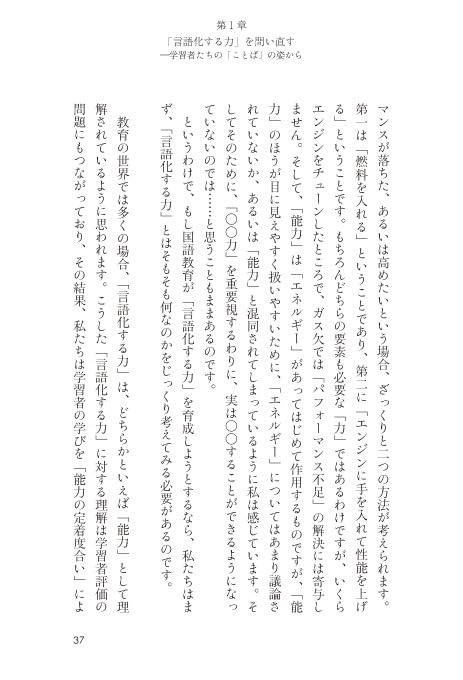 第１章
「言語化する力」を問い直す
―学習者たちの「ことば」の姿から
マンスが落ちた、あるいは高めたいという場合、ざっくりと二つの方法が考えられます。
第一は「燃料を入れる」ということであり、第二に「エンジンに手を入れて性能を上げ
る」ということです。もちろんどちらの要素も必要な「力」ではあるわけですが、いくら
エンジンをチューンしたところで、ガス欠では「パフォーマンス不足」の解決には寄与し
ません。そして、「能力」は「エネルギー」があってはじめて作用するものですが、「能
力」のほうが目に見えやすく扱いやすいために、「エネルギー」についてはあまり議論さ
れていないか、あるいは「能力」と混同されてしまっているように私は感じています。そ
してそのために、「〇〇力」を重要視するわりに、実は〇〇することができるようになっ
ていないのでは……と思うこともままあるのです。
というわけで、もし国語教育が「言語化する力」を育成しようとするなら、私たちはま
ず、「言語化する力」とはそもそも何なのかをじっくり考えてみる必要があるのです。
教育の世界では多くの場合、「言語化する力」は、どちらかといえば「能力」として理
解されているように思われます。こうした「言語化する力」に対する理解は学習者評価の
問題にもつながっており、その結果、私たちは学習者の学びを「能力の定着度合い」によ
37